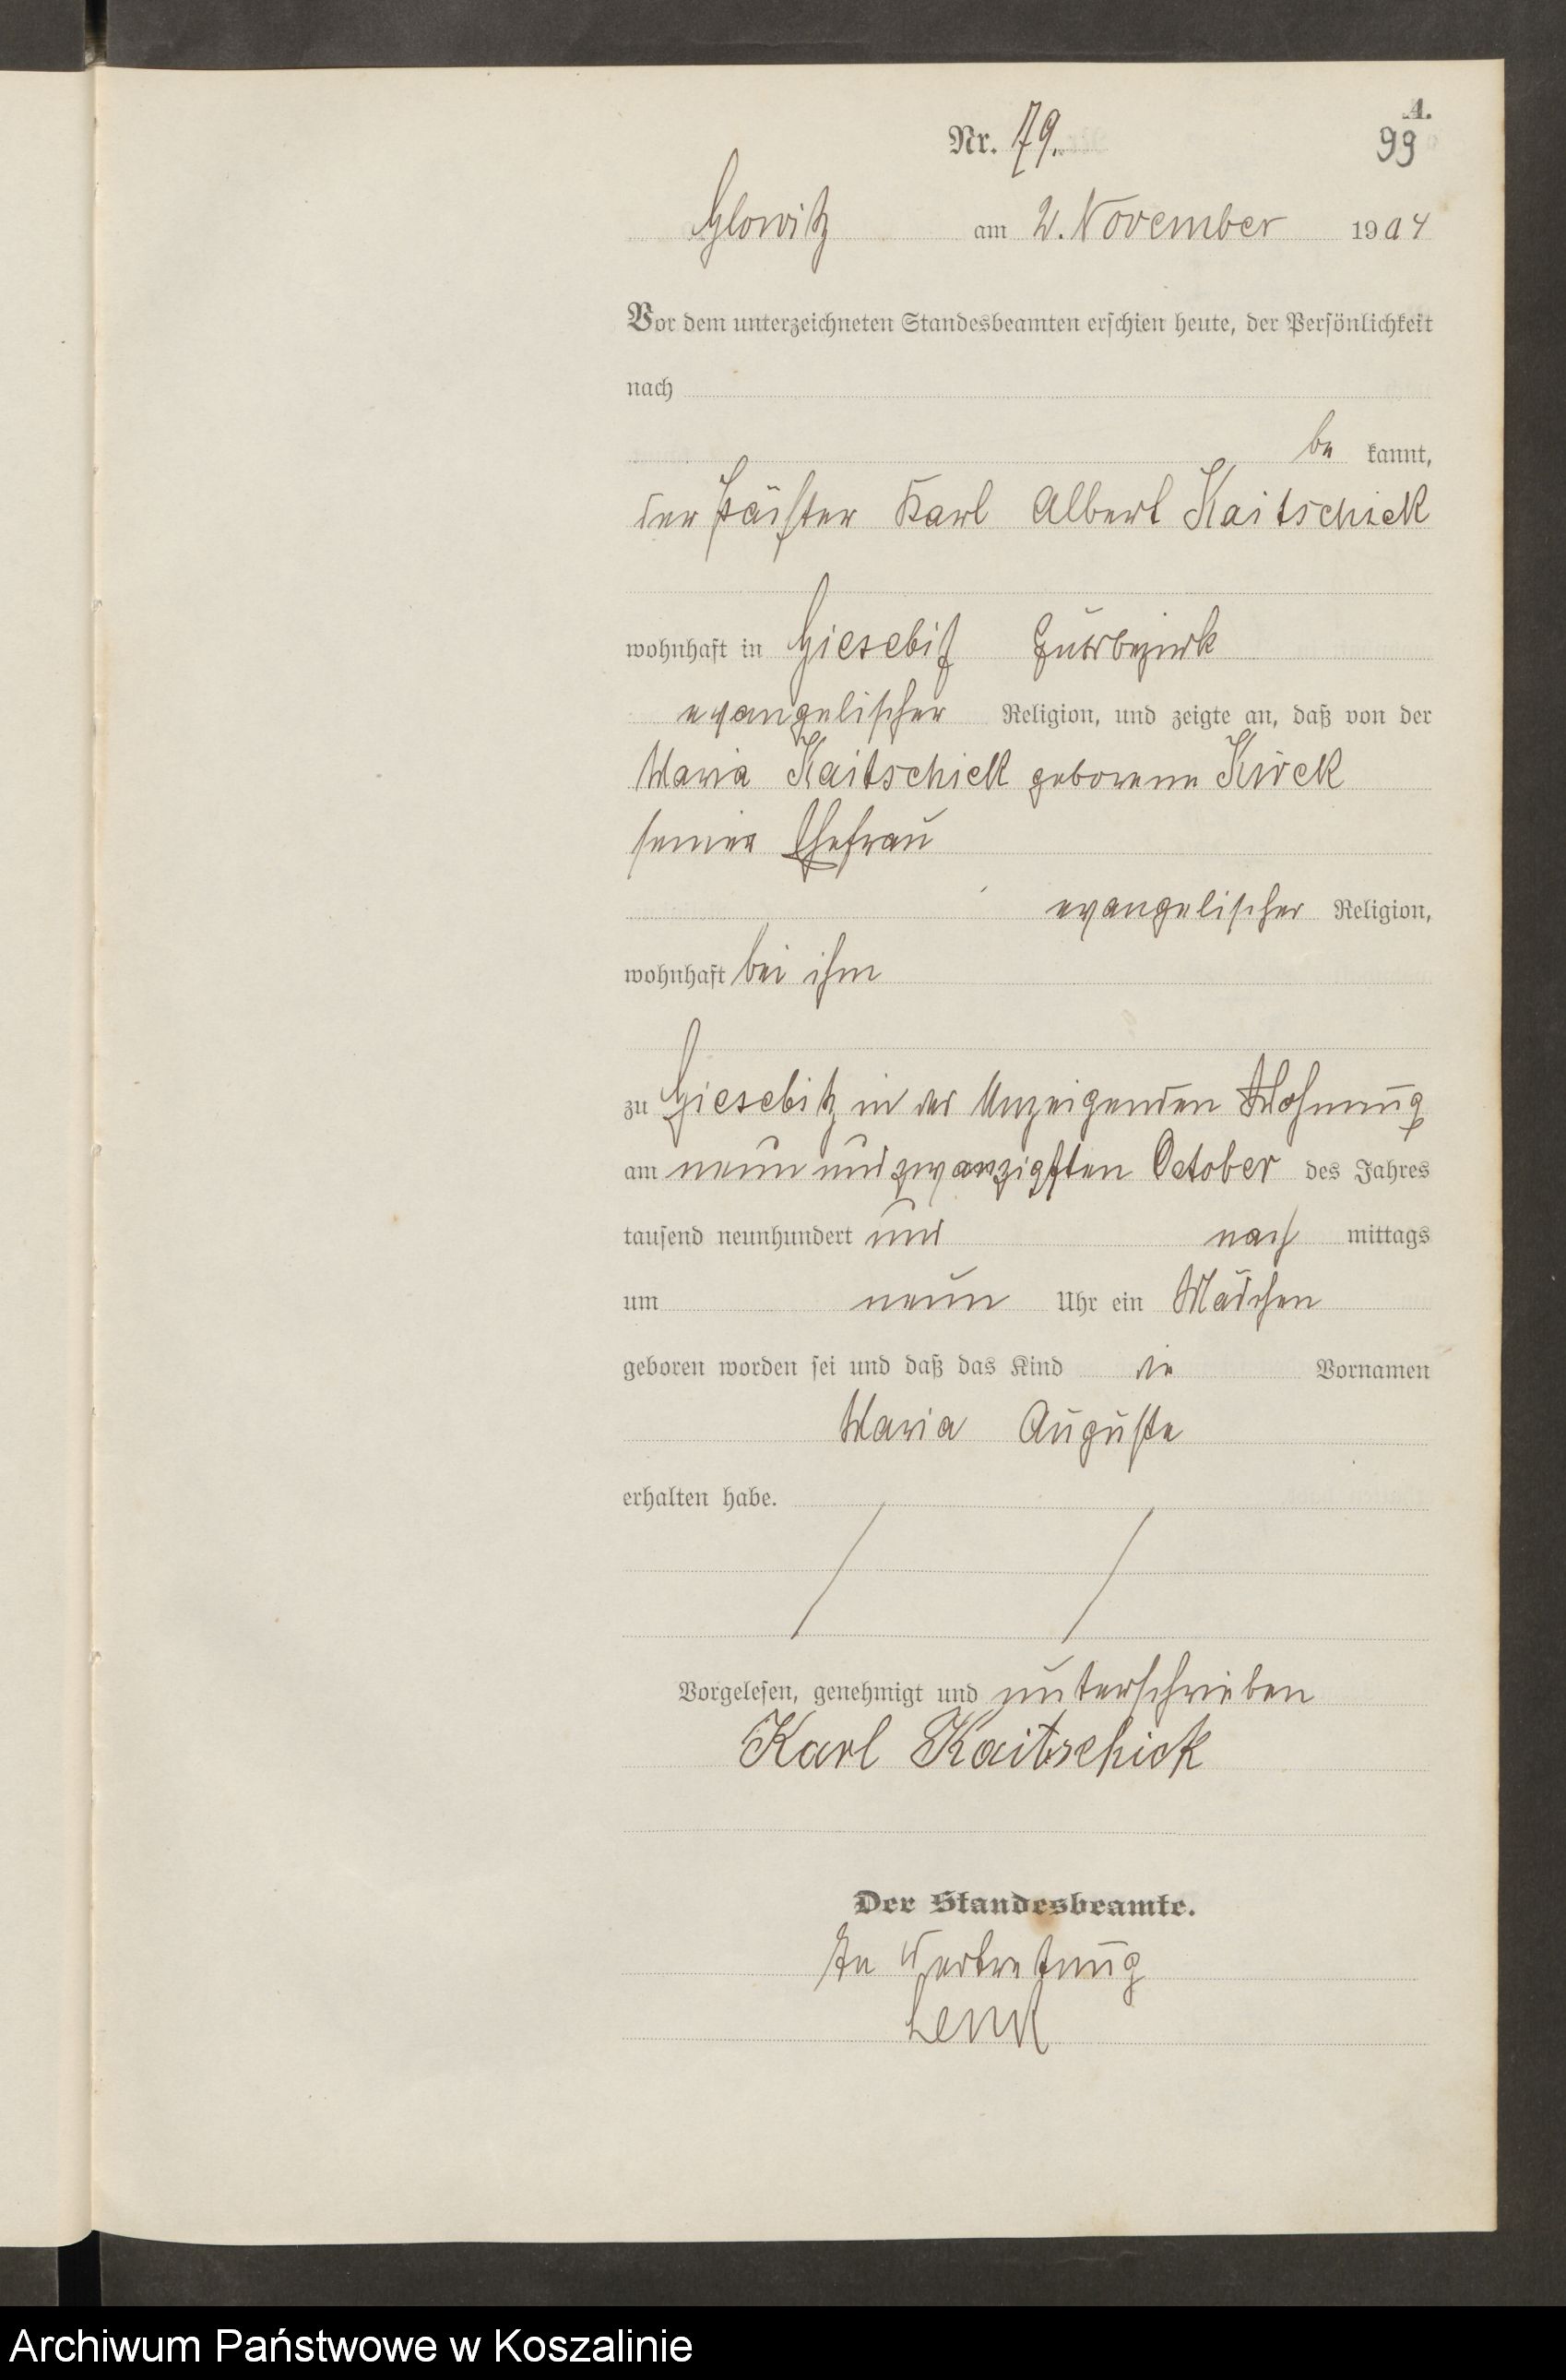 A.
Nr. 79.
99
Glowitz am 2. November 1904
Vor dem unterzeichneten Standesbeamten erschien heute, der Persönlichkeit
nach
be kannt,
der Pächter Karl Albert Kaitschick
wohnhaft in Giesebitz Gutsbezirk
evangelischer Religion, und zeigte an, daß von der
Maria Kaitschick geborene Kirck
seiner Ehefrau
evangelischer Religion,
wohnhaft bei ihm
zu Giesebitz in der Anzeigenden Wohnung
am neun und zwanzigsten October des Jahres
tausend neunhundert und nach mittags
um neun Uhr ein Mädchen
geboren worden sei und daß das Kind die Vornamen
Maria Auguste
erhalten habe.
Vorgelesen, genehmigt und unterschrieben
Karl Kaitschick
Der Standesbeamte.
In Vertretung
Lenk
Archiwum Państwowe w Koszalinie